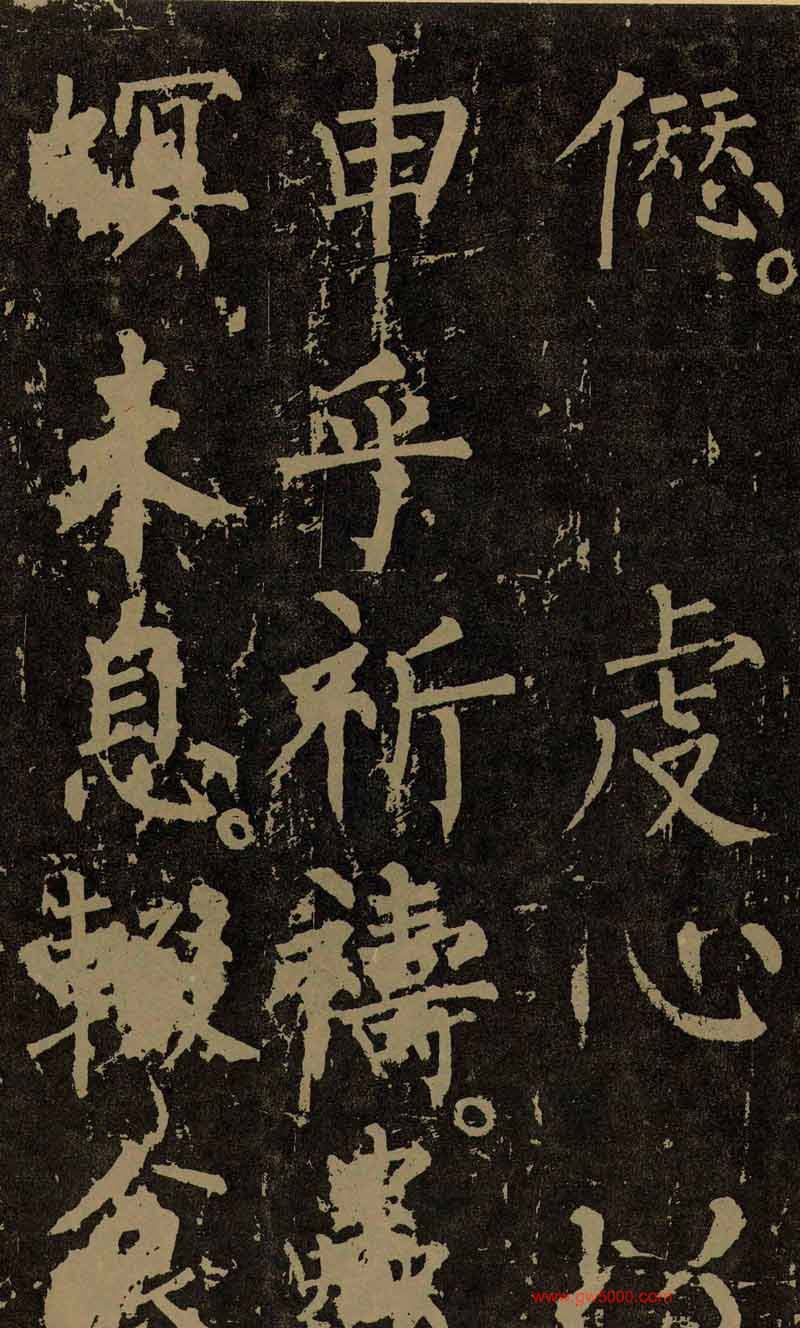 愆。虔心
申乎祈禱。
螟未息。輟食
www.gw5000.com